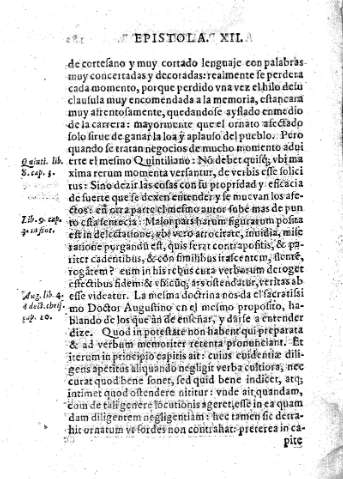 EPISTOLA. XII.
de cortesano y muy cortado lenguaje con palabras
muy concertadas y decoradas: realmente se perdera
cada momento, porque perdido vna vez el hilo de la
clausula muy encomendada a la memoria, estancara
muy afrentosamente, quedandose ayslado en medio
de la carrera: mayormente que el ornato afectado
solo sirue de ganar la loa y aplauso del pueblo. Pero
quando se tratan negocios de mucho momento adui
erte el mesmo Quintiliano: No debet quisq; vbi ma
xima rerum momenta versantur, de verbis esse solici
tus: Sino dezir las cosas con su propriedad y eficacia
de suerte que se dexen entender y se mueuan los afe-
ctos: en otra parte el mesmo autor sube mas de pun
to esta sentecia: Maior pars harum figurarum posita
est in delectatione, vbi vero atrocitate, inuidia, mise
ratione pugnandū est, quis ferat contrapositis, & pa-
riter cadentibus, & cōsimilibus irascentem, flentē,
rogātem? cum in his rebus cura verborum deroget
affectibus fidem: & vbicūq; ars ostendatur, veritas ab
esse videatur. La mesma doctrina nos da el sacratissi
mo Doctor Augustino en el mesmo proposito, ha-
blando de los que an de enseñar, y darse a entender
dize. Quod in potestate non habent qui preparata
& ad verbum memoriter retenta pronunciant. Et
iterum in principio capitis ait: cuius euidentiæ dili
gens apetitus aliquando negligit verba cultiora, nec
curat quod bene sonet, sed quid bene indicet, atq;
intimet quod ostendere nititur: vnde ait quandam,
cum de tali genere locutionis ageret, esse in ea quan
dam diligentem negligentiam: hec tamen sic detra-
hit ornatum vt sordes non contrahat: preterea in ca
pite
Quinti. lib.
8. cap. 3.
Lib. 9. cap.
Aug. lib. 4.
de doct. chris.
cap. 10.